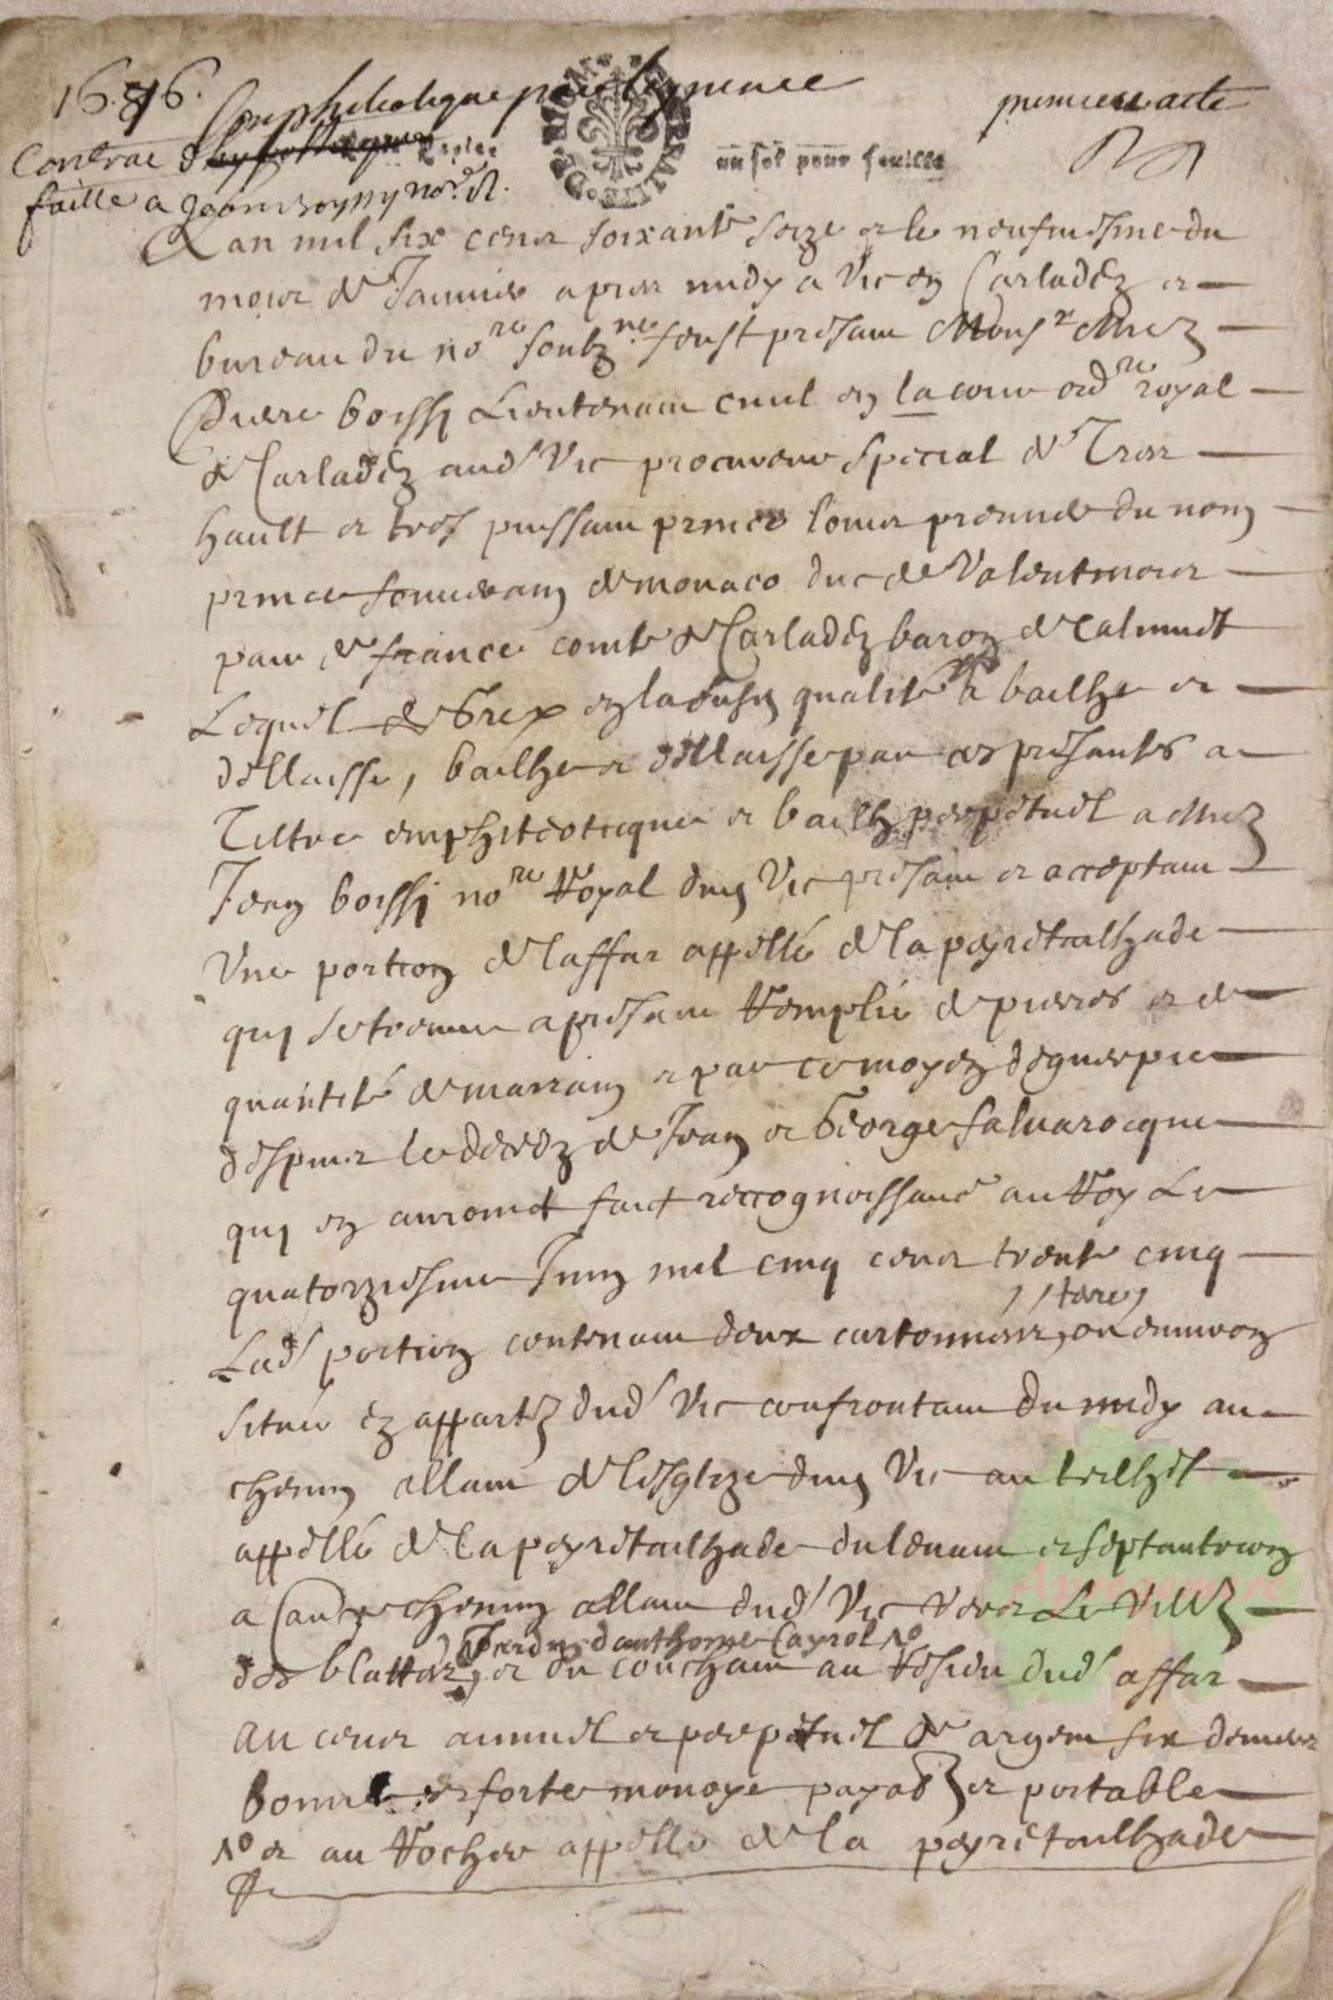 1676.
Emphiteotique
premiere acte
Contrac
GENERALITE DE RIOM
un sol pour feuille
faitte a Jean Boyssy nore. R.
Lan mil six cens soixante seze et le neufviesme du
mois de Janvier apres midy a Vic en Carladez et
bureau du nore soubzne feust presant Monsr Mre
Pierre boissi Lieutenant civil en la cour ordre royal
de Carladez aud Vic procureur special de Tres
hault et tres puissant prince louis premier du nom
prince souverain de monaco duc de Valentinois
pair de france comte de Carladez baron de Calvinet
Lequel de Grex en lad qualité a bailhe et
dellaisse, bailhe et dellaisse par ces presantes a
Tiltre emphiteoticque et bailh perpetuel a Mre
Jean boissi nore Royal dud Vic presant et acceptant
Une portion de laffar appellé de la peyretailhade
qui se treuve a presant Remplie de pierres et de
quantité de marrain et par ce moyen deguerpie
despuis le decez de Jean et George salvarocque
qui en auroinct faict reccognoissance au Roy Le
quatorziesme Juin mil cinq cens trente cinq
/ stere /
Lad portion contenant deux cartonnées, ou environ
située ez appartz dud Vic confrontant du midy au
chemin allant de lesglize dud Vic au teilhet
appellé de la peyretailhade du levant et septantrion
a autre chemin allant dud Vic vers Le Villez
Jardin danthoine Cayrol No
des blattes, et du couchant au Residu dud affar
au cens annuel et perpetuel de argent six deniers
bonne et forte monoye payab et portable
No et au Rocher appellé de la peyretailhade